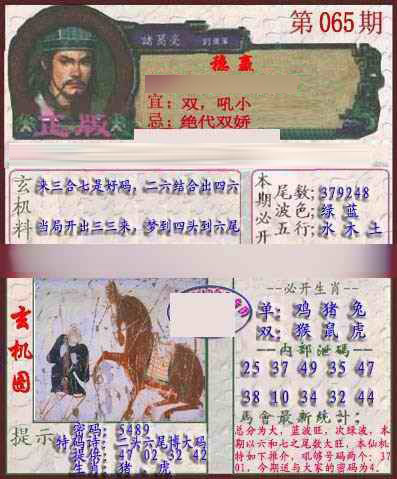 第065期
諸葛亮
穩贏
宜：双，吼小
忌：绝代双娇
正版
玄机料
来三合七是好码，二六结合出四六
当局开出三三来，梦到四头到六尾
本期必开
尾数：379248
波色：绿 蓝
五行：水 木 土
玄机图
必开生肖
单：鸡 猪 兔
双：猴 鼠 虎
内部泄码
25 37 49 35 47
38 10 34 32 44
馬會最新統計：
总分为大，蓝波旺，次绿波，本
期以六和七之尾数大旺，本仙机
特如下推介，吼够号码两个：37
01，今期送与大家的密码为4.
提示
密码：5489
特码诗：二头六尾博大码
提供：47 02 32 42
生肖：猪，虎